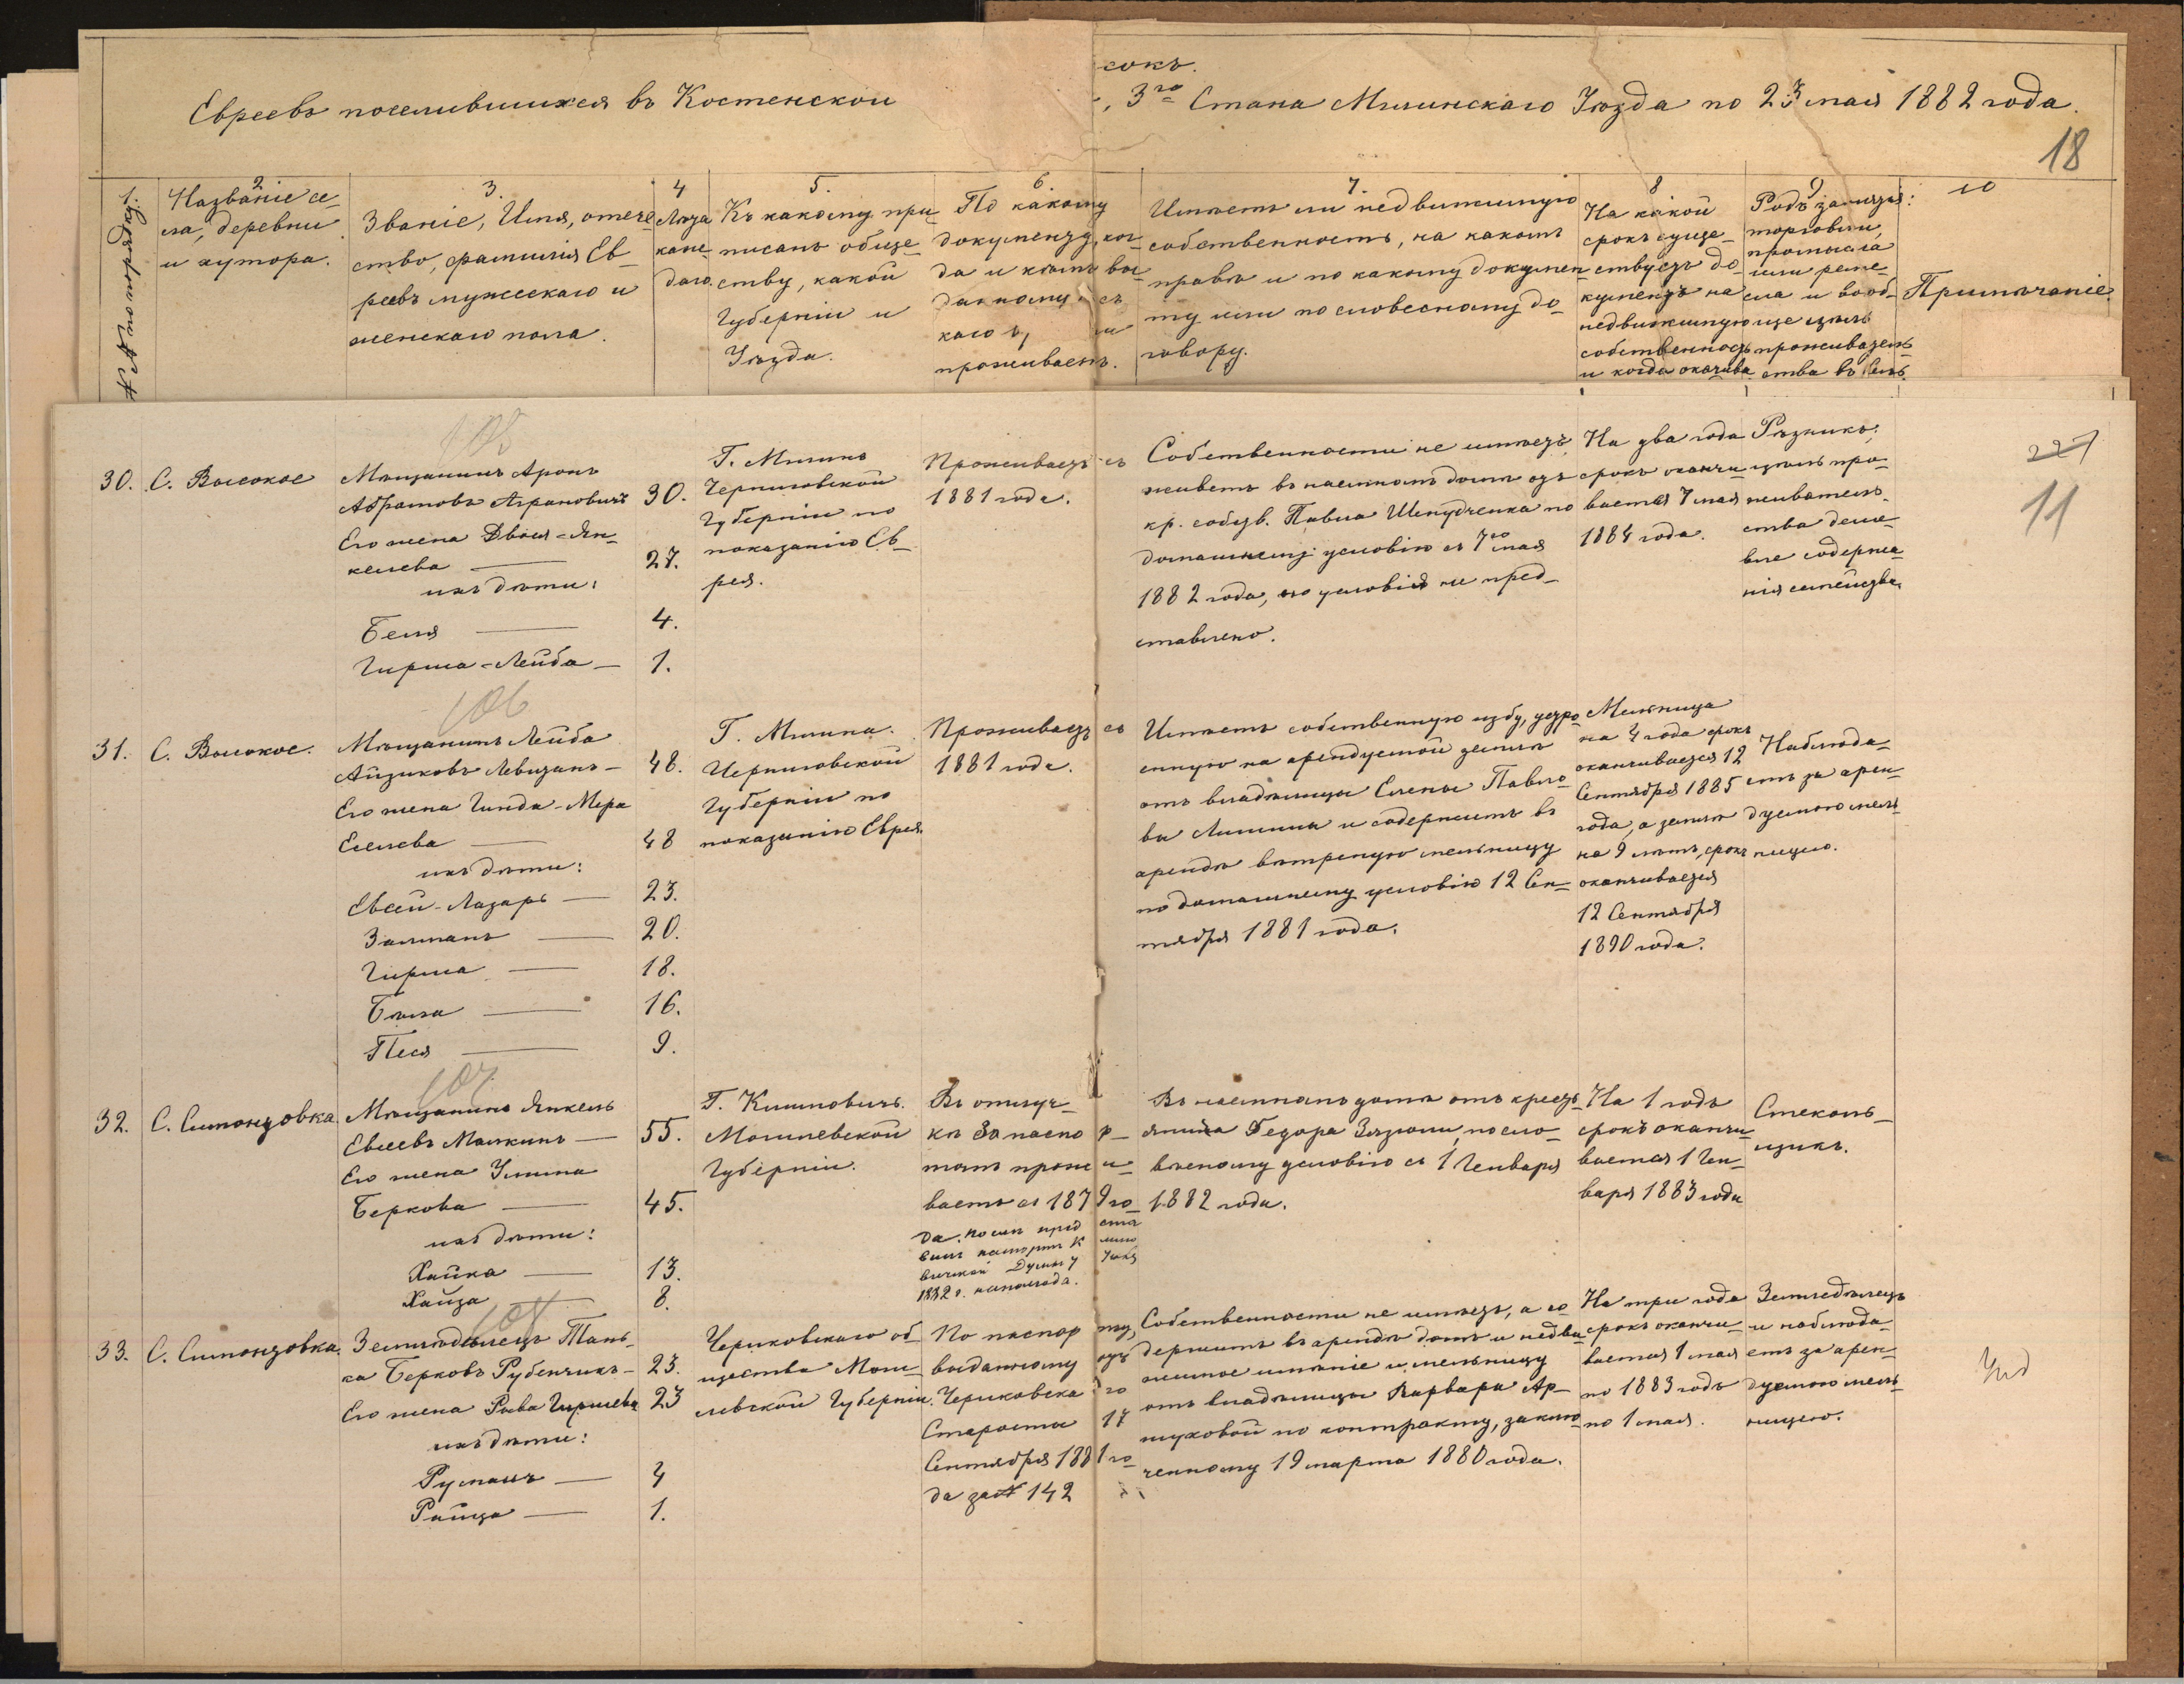 сокъ.
Евреевъ поселившихся въ Костенской
3го Стана Мглинскаго Уѣзда по 23 мая 1882 года.
18
1.
№№ по порядку.
2
Названіе се-
ла, деревни
и хутора.
3.
Званіе, Имя, отече-
ство, фамилія Ев-
реевъ мужескаго и
женскаго пола.
4
Лѣта
каж-
даго.
5.
Къ какому при-
писанъ обще-
ству, какой
Губерніи и
Уѣзда.
6.
По какому
документу, ког-
да и кѣмъ вы-
данному съ
каго
проживаетъ.
7.
Имѣетъ ли недвижимую
собственность, на какомъ
правѣ и по какому докумен-
ту или по словесному до-
говору.
8
На какой
срокъ суще-
ствуетъ до-
кументъ на
недвижимую
собственность
и когда оканчива
9
Родъ занятій:
торговли,
промысла
или реме-
сла и вооб-
ще цѣль
проживатель-
ства въ селѣ.
10
Примѣчаніе.
105
30. С. Высокое
Мѣщанинъ Аронъ
Абрамовъ Аграновичъ 30.
Его жена Двося-Ян-
келева — 27.
ихъ дѣти:
Беля — 4.
Гирша-Лейба — 1.
Г. Мглинъ
Черниговской
Губерніи по
показанію Ев-
рея.
Проживаетъ съ
1881 года.
Собственности не имѣетъ,
живетъ въ наемномъ домѣ отъ
кр. собств. Павла Шепудченка по
домашнему условію съ 7го мая
1882 года, но условія не пред-
ставлено.
На два года
срокъ оканчи-
вается 7 мая
1884 года.
Рѣзникъ,
цѣль про-
живатель-
ства деше-
вле содержа-
нія семейства.
227
11
106
31. С. Высокое.
Мѣщанинъ Лейба
Айзиковъ Левитанъ — 48.
Его жена Гинда-Мера
Еселева — 48
ихъ дѣти:
Евсей-Лазарь — 23.
Залманъ — 20.
Гирша — 18.
Бейла — 16.
Песя — 9.
Г. Мглина.
Черниговской
Губерніи по
показанію Еврея.
Проживаетъ съ
1881 года.
Имѣетъ собственную избу, устро-
енную на арендуемой землѣ
отъ владѣлицы Елены Павло-
вы Лишины и содержитъ въ
арендѣ вѣтреную мельницу
по домашнему условію 12 Сен-
тября 1881 года.
Мельница
на 4 года срокъ
оканчивается 12
Сентября 1885
года, а земля
на 9 лѣтъ, срокъ
оканчивается
12 Сентября
1890 года.
Наблюда-
етъ за арен-
дуемою мель-
ницею.
107
32. С. Симонтовка
Мѣщанинъ Янкель
Евсеевъ Малкинъ — 55.
Его жена Умма
Беркова — 45.
ихъ дѣти:
Хайка — 13.
Хаиза — 8.
Г. Климовичъ.
Могилевской
Губерніи.
Въ отлуч-
кѣ за паспор-
томъ прожи-
ваетъ съ 1879 го-
да. Послѣ предста
вилъ паспортъ Климо
вичской Думы 7 Іюня
1882 г. на полгода.
Въ наемномъ домѣ отъ кресть-
янина Федора Зязюли, по сло-
весному условію съ 1 Генваря
1882 года.
На 1 годъ
срокъ оканчи-
вается 1 Ген-
варя 1883 года
Стеколь-
щикъ.
108
33. С. Симонтовка.
Земледѣлецъ Тань-
ка Берковъ Рубенчикъ — 23.
Его жена Рива Гиршева 23
ихъ дѣти:
Румань — 4
Райца — 1.
Чериковскаго об-
щества Моги-
левской Губерніи.
По паспорту,
выданному отъ
Чериковскаго
Старосты 17
Сентября 1881 го-
да за № 142
Собственности не имѣетъ, а со-
держитъ въ арендѣ домъ и недви-
жимое имѣніе и мельницу
отъ владѣлицы Варвары Ар-
туховой по контракту, заклю-
ченному 19 марта 1880 года.
На три года
срокъ оканчи-
вается 1 мая
по 1883 годъ
по 1 мая.
Земледѣлецъ
и наблюда-
етъ за арен-
дуемою мель-
ницею.